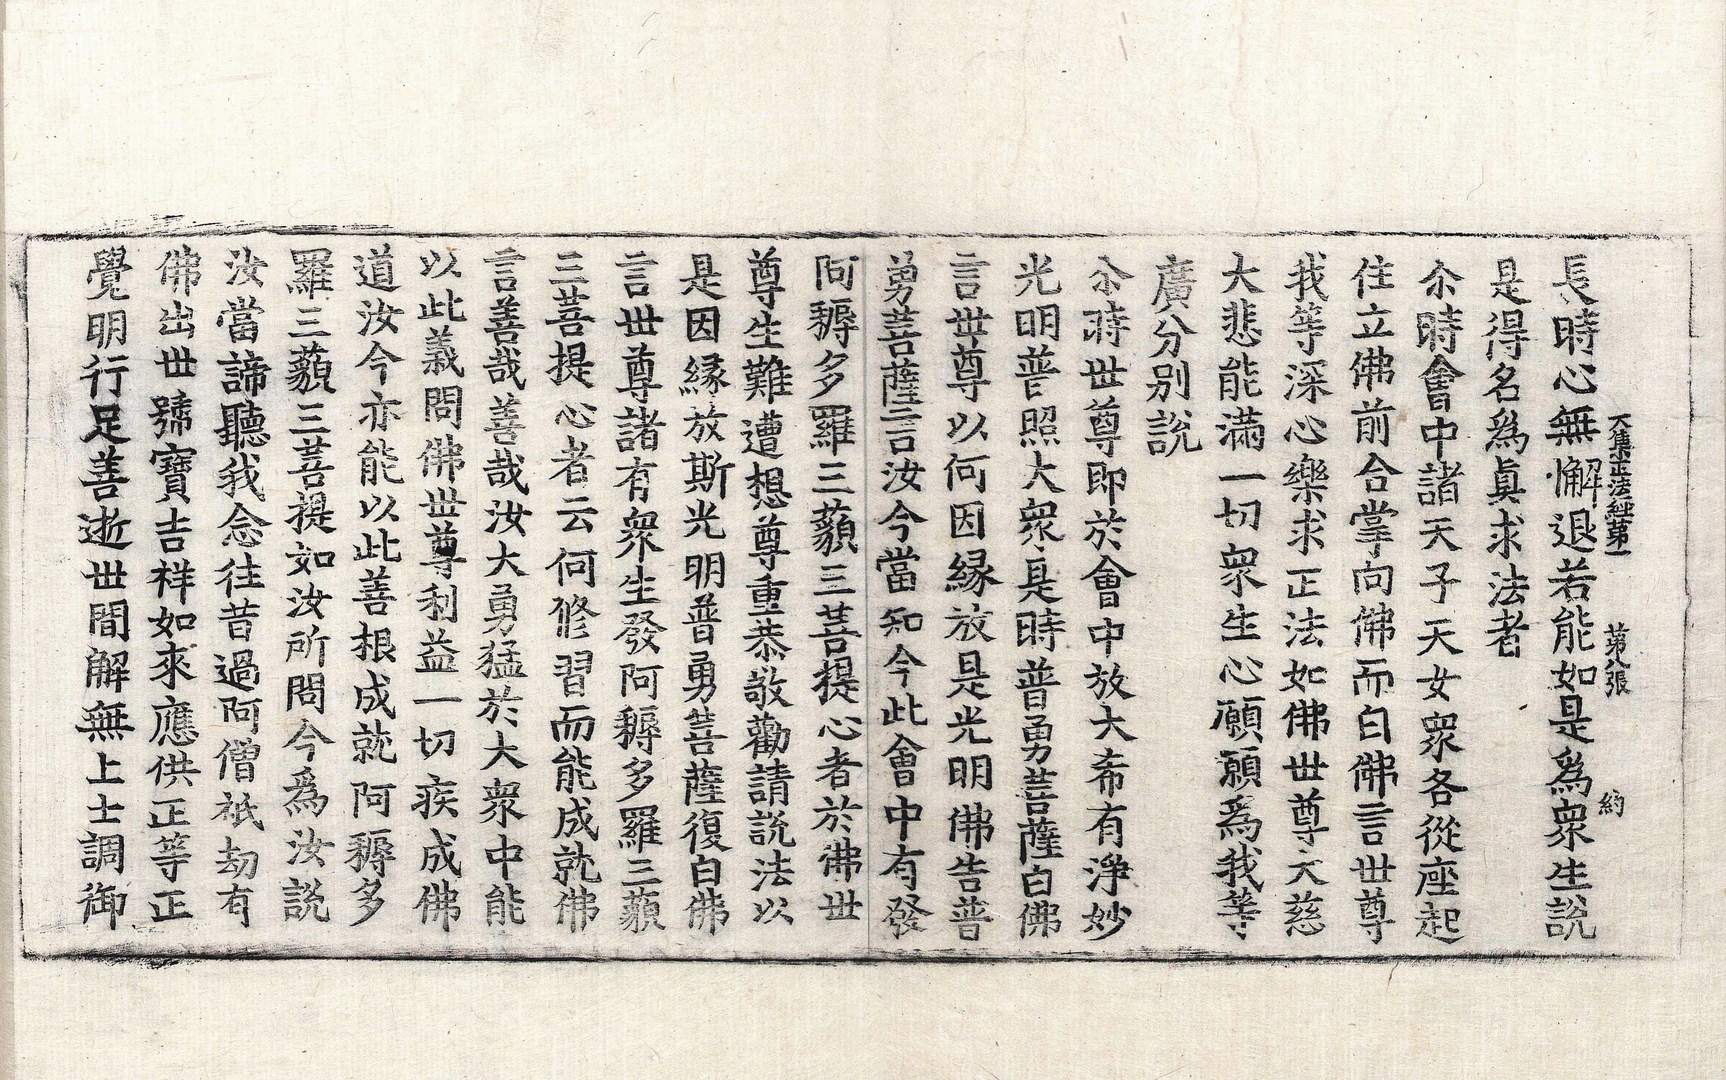 大集正法經第一 第八張 約
長時心無懈退若能如是爲衆生說
是得名爲眞求法者
尒時會中諸天子天女衆各從座起
住立佛前合掌向佛而白佛言世尊
我等深心樂求正法如佛世尊大慈
大悲能滿一切衆生心願願爲我等
廣分別說
尒時世尊即於會中放大希有淨妙
光明普照大衆是時普勇菩薩白佛
言世尊以何因縁放是光明佛告普
勇菩薩言汝今當知今此會中有發
阿耨多羅三藐三菩提心者於佛世
尊生難遭想尊重恭敬勸請說法以
是因縁放斯光明普勇菩薩復白佛
言世尊諸有衆生發阿耨多羅三藐
三菩提心者云何修習而能成就佛
言善哉善哉汝大勇猛於大衆中能
以此義問佛世尊利益一切疾成佛
道汝今亦能以此善根成就阿耨多
羅三藐三菩提如汝所問今爲汝說
汝當諦聽我念往昔過阿僧祇劫有
佛出世號寶吉祥如來應供正等正
覺明行足善逝世間解無上士調御